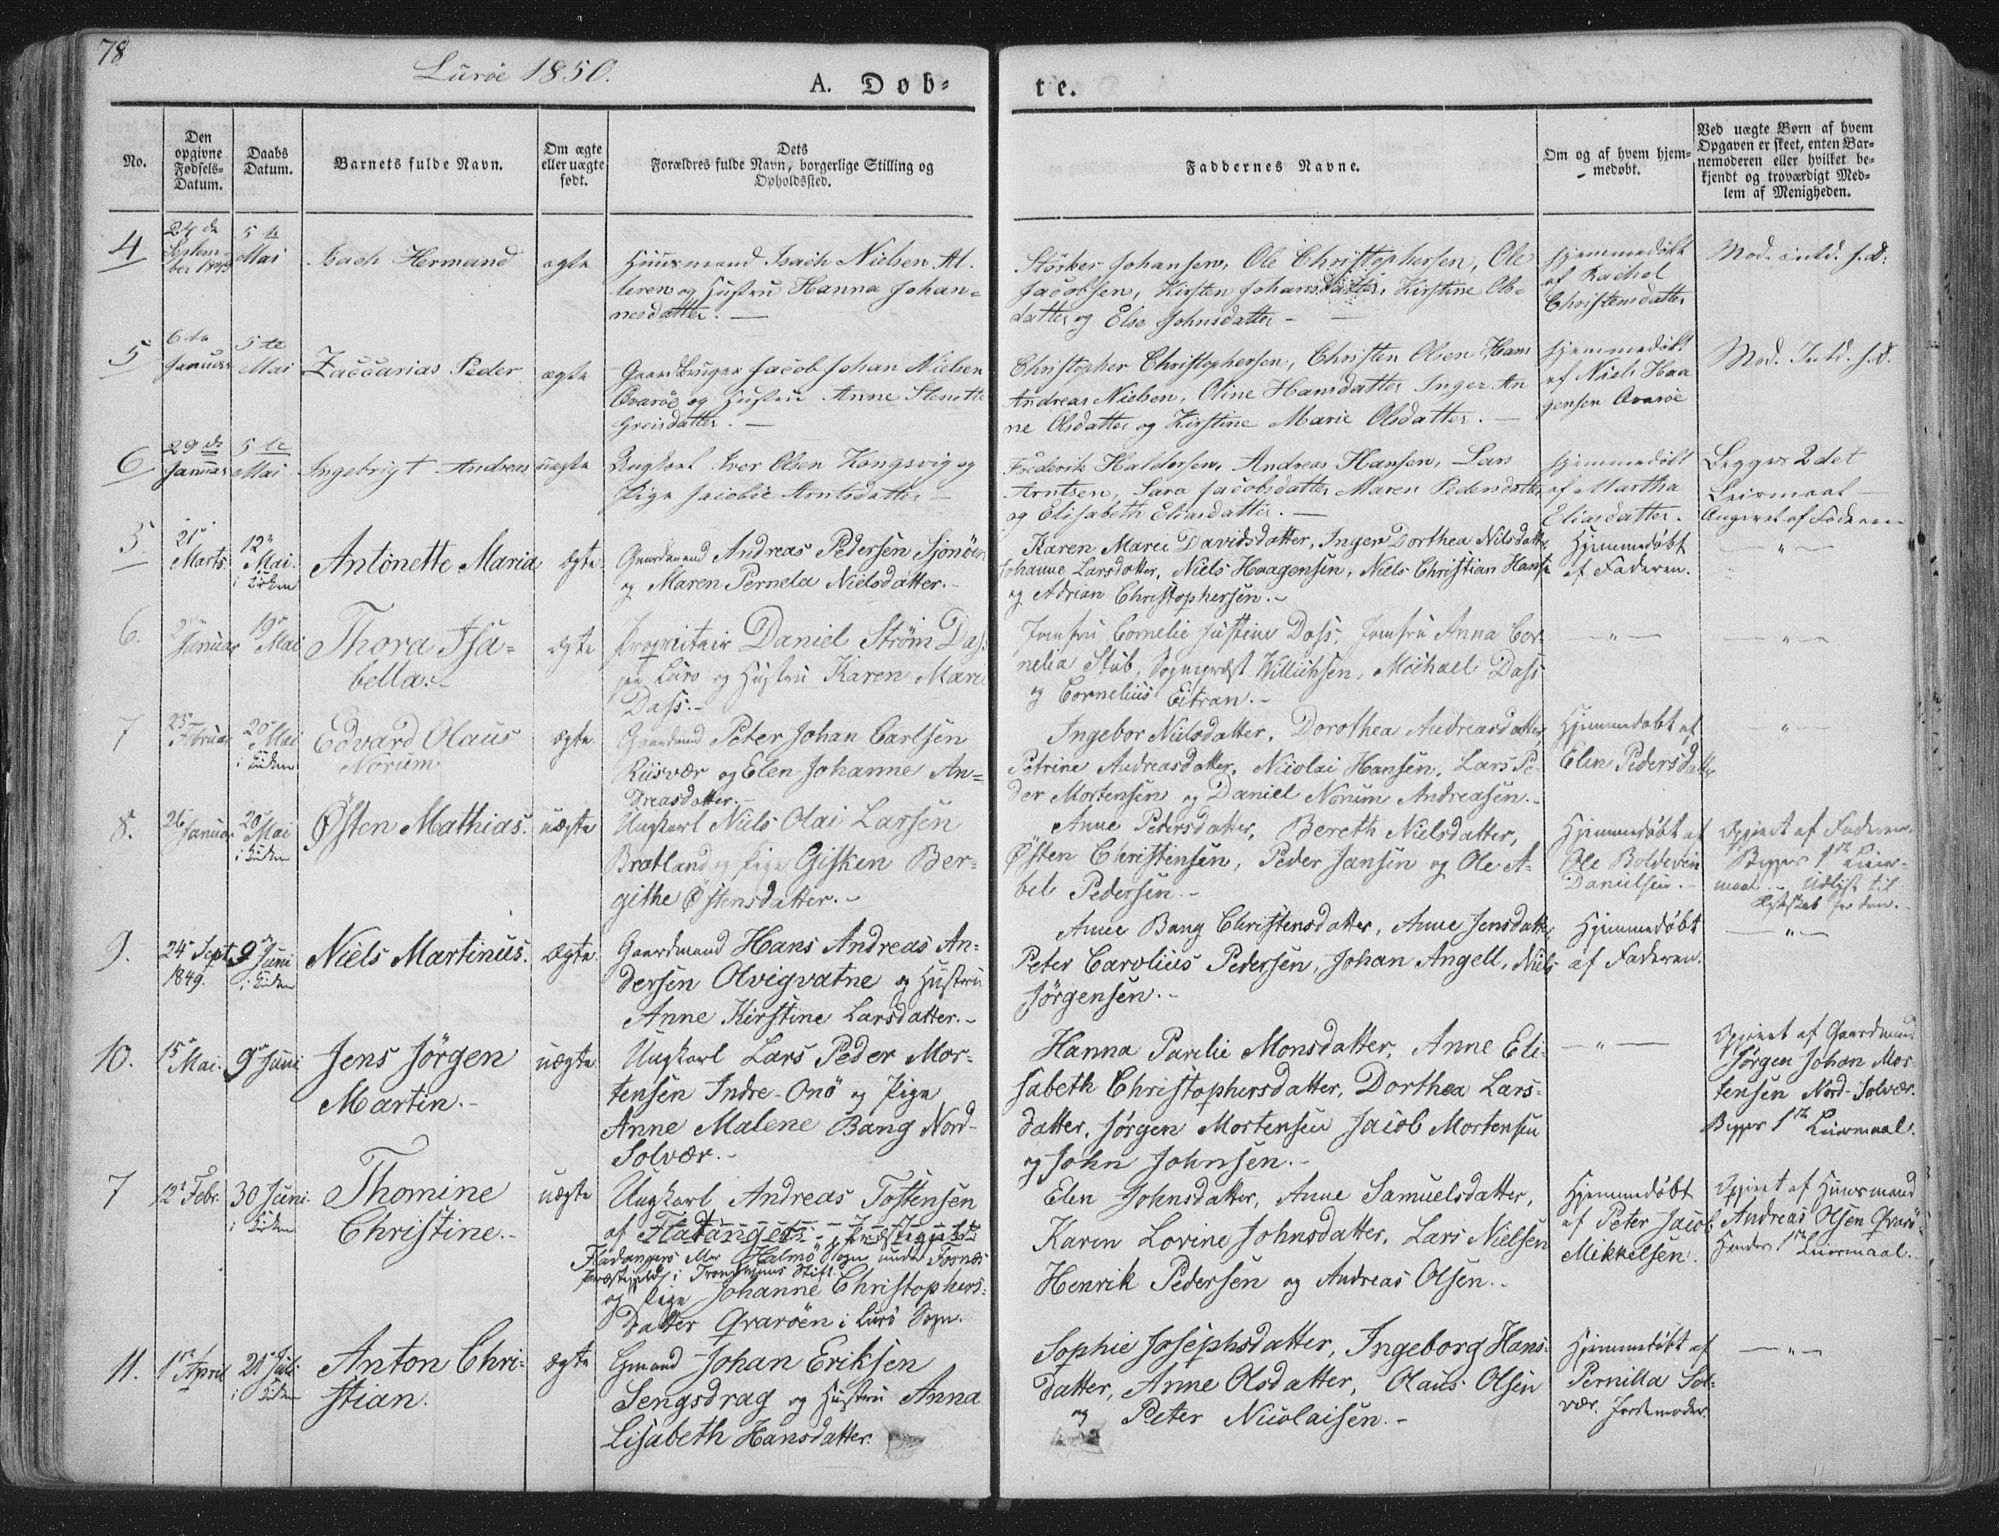 78
Lurøe 1850.
A. Døb-
te.
No.
Den opgivne Fødsels-Datum.
Daabs Datum.
Barnets fulde Navn.
Om ægte eller uægte født.
Dets Forældres fulde Navn, borgerlige Stilling og Opholdssted.
Faddernes Navne.
Om og af hvem hjem-
medøbt.
Ved uægte Børn af hvem
Opgaven er skeet, enten Bar-
nemoderen eller hvilket be-
kjendt og troværdigt Med-
lem af Menigheden.
4
24de Septem-
ber 1849
5te Mai
Isach Hermand
ægte
Huusmand Isach Nielsen
og Hustru Hanna Johan-
nesdatter. —
Størker Johansen, Ole Christophersen, Ole
Jacobsen, Kirsten Johansdatter, Kirstine Ols-
datter og Else Johnsdatter —
Hjemmedøbt
af Rachel
Christensdatter
5
6te Januar
5te Mai
Zaccarias Peder
ægte
Gaardbruger Jacob Johan Nielsen
Qvarøe og Hustru Anne Stenette
Greisdatter. —
Christopher Christophersen, Christen Olsen Hans
Andreas Nielsen, Oline Hansdatter Inger An
ne Olsdatter og Kirstine Marie Olsdatter. —
Hjemmedøbt
af Niels Haa
gensen Qvarøe
6
29de Januar
5te Mai
Ingebrigt Andreas
uægte
Ungkarl Iver Olsen Kongsvig og
Pige Jacobie Arntsdatter —
Frederik Haldorsen, Andreas Hansen, Lars
Arntsen, Sara Jacobsdatter Maren Pedersdatter
og Elisabeth Eliasdatter. —
Hjemmedøbt
af Martha
Eliasdatter.
Begges 2det
Leiermaal —
Angivet af Faderen
5
21 Marts
12 Mai.
i Kirken
Antonette Maria
ægte
Gaardmand Andreas Pedersen Sjonøen
og Maren Pernela Nielsdatter. —
Karen Marei Davidsdatter, Inger Dorthea Nilsdatter
Johanne Larsdatter, Niels Haagensen, Niels Christian Hansen
og Adrian Christophersen. —
Hjemmedøbt
af Faderen.
— " —
6.
Januar
19 Mai
Thora Isa-
bella. —
ægte
Proprietair Daniel Strøm Dass
paa Lurø og Hustru Karen Marie
Dass. —
Jomfru Cornelie Justine Dass, Jomfru Anna Cor-
nelia Stub, Sogneprest Willichsen, Michael Dass
og Cornelius Eitran. —
— " —
— " —
7
23 Februar
20 Mai
i Kirken
Edvard Olaus
Norum
ægte.
Gaardmd Peter Johan Carlsen
Riisvær og Elen Johanne An-
dreasdatter. —
Ingebor Nielsdatter, Dorothea Andreasdatter,
Petrine Andreasdatter, Nicolai Hansen, Lars Pe-
der Mortensen og Daniel Norum Andreasen. —
Hjemmedøbt af
Elen Pedersdatter
— " —
8.
26 Januar
20 Mai
i Kirken
Østen Mathias.
uægte
Ungkarl Niels Olai Larsen
Bratland og Pige Gisken Ber-
githe Østensdatter. —
Anne Pedersdatter, Bereth Nielsdatter,
Østen Christensen, Peder Jansen og Ole A-
bel Pedersen —
Hjemmedøbt af
Ole Boldevin
Danielsen. —
Opgivet af Faderen.
Begges 1ste Leier-
maal. — Udlyst til
Ægteskab før den. —
9.
24 Sept.
1849.
9 Juni
i Kirken
Niels Martinus.
ægte
Gaardmand Hans Andreas An-
dersen Olvigvatne og Hustru
Anne Kirstine Larsdatter. —
Anne Bang Christensdatter, Anne Jensdatter
Peter Carolius Pedersen, Johan Angell, Niels
Jørgensen. —
Hjemmedøbt
af Faderen.
— " —
10.
15 Mai.
9 Juni
Jens Jørgen
Martin. —
uægte
Ungkarl Lars Peder Mor-
tensen Indre-Onø og Pige
Anne Malene Bang Nord-
Solvær. —
Hanna Parelie Monsdatter, Anne Eli-
sabeth Christophersdatter, Dorthea Lars-
datter, Jørgen Mortensen Jacob Mortensen
og John Johnsen. —
— " —
Opgivet af Gaardmand
Jørgen Johan Mor
tensen Nord-Solvær.
Begges 1ste Leiermaal.
7
12 Febr.
30 Juni.
i Kirken
Thomine
Christine. —
uægte
Ungkarl Andreas Tostensen
af Flatangers Præstegjeld
Fladangers Halmø Sogn under Fosnæs
Præstegjeld i Trondhjems Stift.
og Pige Johanne Christophers-
datter Qvarøen i Lurø Sogn.
Elen Johnsdatter, Anne Samuelsdatter,
Karen Lovine Johnsdatter, Lars Nielsen
Henrik Pedersen og Andreas Olsen. —
Hjemmedøbt
af Peter Jacob
Mikkelsen.
Opgivet af Huusmand
Andreas Olsen Qvarø
Hendes 1ste Leiermaal. —
11.
1 April
21 Juli
i Kirken
Anton Chri-
stian.
ægte
Gmand Johan Eriksen
Sengsdrag og Hustru Anna
Lisabeth Hansdatter.
Sophie Josephsdatter, Ingeborg Hans-
datter, Anne Olsdatter, Olaus Olsen
og Peter Nicolaisen. —
Hjemmedøbt af
Pernilla Sol-
vær. Jordemoder.
— " —